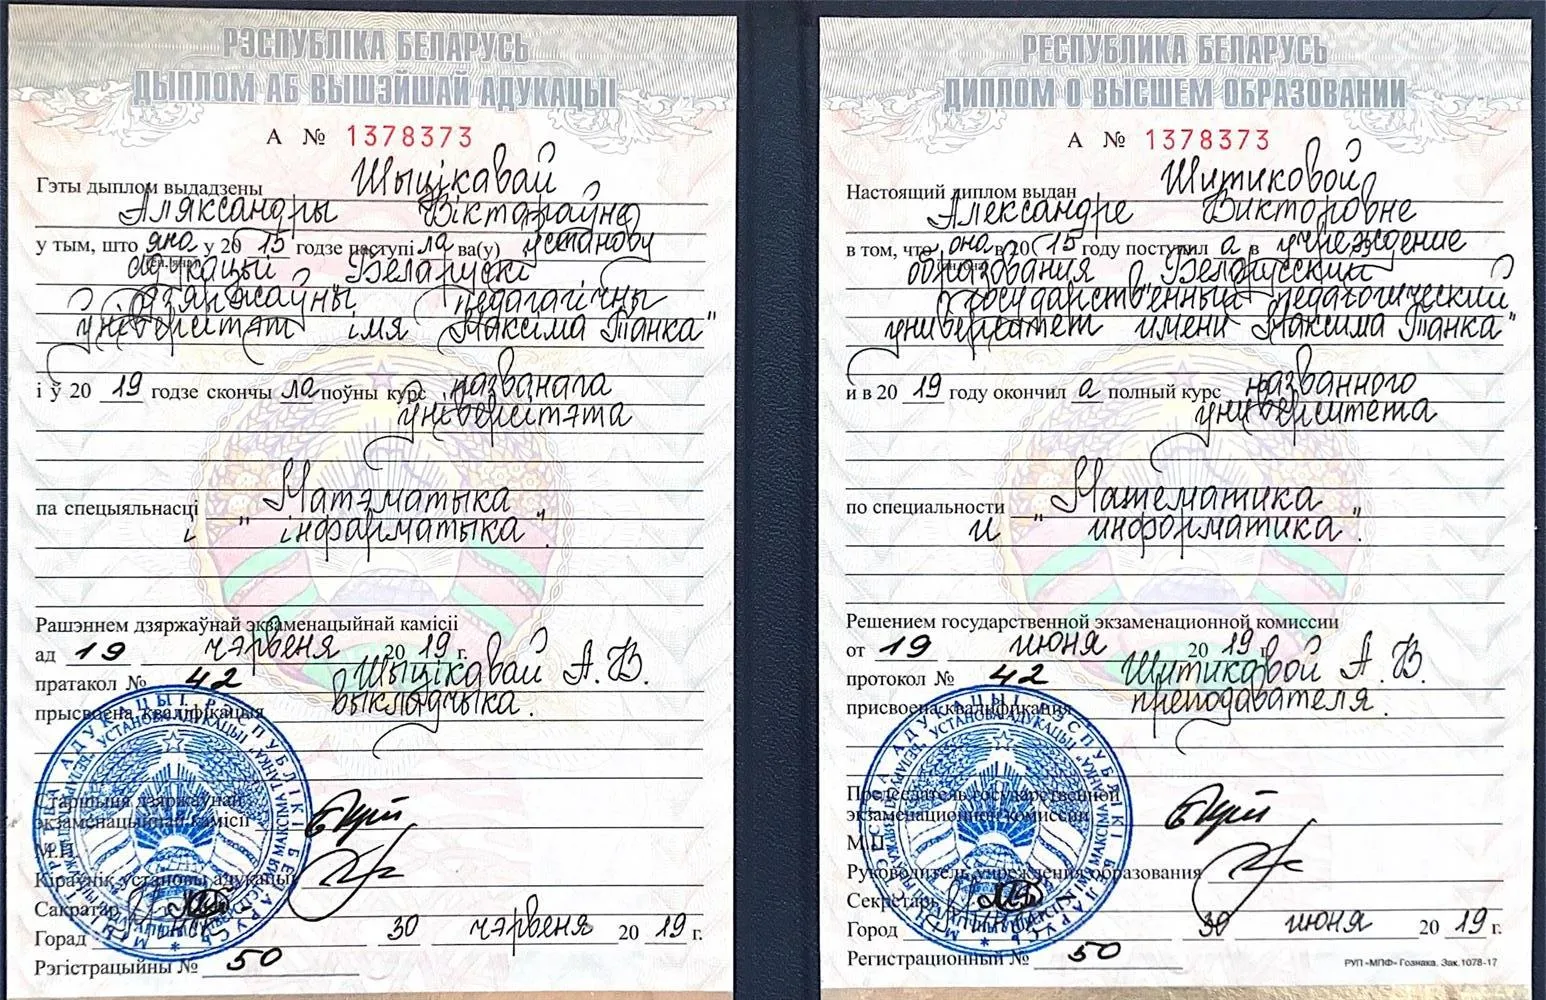 РЭСПУБЛІКА БЕЛАРУСЬ
ДЫПЛОМ АБ ВЫШЭЙШАЙ АДУКАЦЫІ
А № 1378373
Гэты дыплом выдадзены Шыцікавай
Аляксандры Віктараўне
у тым, што яна у 20 15 годзе паступі ла ва(у) установу
адукацыі "Беларускі
дзяржаўны педагагічны
ўніверсітэт імя Максіма Танка"
і ў 20 19 годзе скончы ла поўны курс названага
ўніверсітэта
па спецыяльнасці "Матэматыка
і "інфарматыка".
Рашэннем дзяржаўнай экзаменацыйнай камісіі
ад 19 чэрвеня 20 19 г.
пратакол № 42 Шыцікавай А. В.
прысвоена кваліфікацыя выкладчыка.
Старшыня дзяржаўнай
экзаменацыйнай камісіі
М.П.
Кіраўнік установы адукацыі
Сакратар
Горад Мінск 30 чэрвеня 20 19 г.
Рэгістрацыйны № 50
РЕСПУБЛИКА БЕЛАРУСЬ
ДИПЛОМ О ВЫСШЕМ ОБРАЗОВАНИИ
А № 1378373
Настоящий диплом выдан Шитиковой
Александре Викторовне
в том, что она в 20 15 году поступил а в учреждение
образования "Белорусский
государственный педагогический
университет имени Максима Танка"
и в 20 19 году окончил а полный курс названного
университета
по специальности "Математика
и "информатика".
Решением государственной экзаменационной комиссии
от 19 июня 20 19 г.
протокол № 42 Шитиковой А. В.
присвоена квалификация преподавателя.
Председатель государственной
экзаменационной комиссии
М.П.
Руководитель учреждения образования
Секретарь
Город Минск 30 июня 20 19 г.
Регистрационный № 50
РУП «МПФ» Гознака. Зак. 1078-17